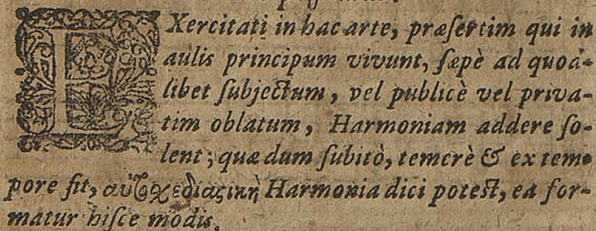 EXercitati in hac arte, præsertim qui in
aulis principum vivunt, sæpè ad quod-
libet subjectum, vel publicè vel priva-
tim oblatum, Harmoniam addere so-
lent; quæ dum subitò, temerè & ex tem-
pore fit, αὐτοχεδιαστικὴ Harmonia dici potest, ea for-
matur hisce modis.